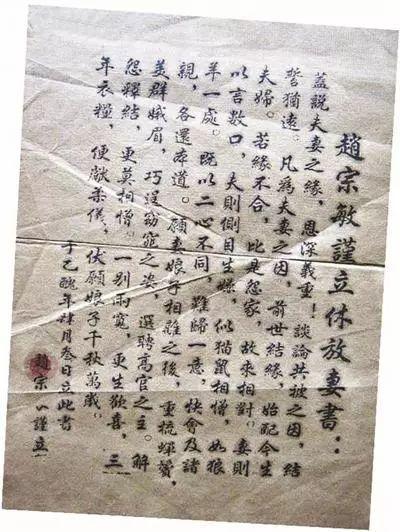 趙宗敏謹立休放妻書：：
蓋説夫妻之緣，恩深義重！談論共被之因，結
誓猶遠。凡為夫妻之因，前世結緣，始配今生
夫婦。若緣不合，比是怨家，故來相對。妻則
以言數口，夫則側目生嫌，似猫鼠相憎，如狼
羊一處。既以二心不同，難歸一意，快會及諸
親，各還本道。願妻娘子相離之後，重梳蟬鬢，
美群娥眉，巧逞窈窕之姿，選聘高官之主。解
怨釋結，更莫相憎。一别兩寬，更生歡喜，三
年衣糧，便獻柔儀，伏願娘子千秋萬歲。
于乙醜年肆月叁日立此書
趙宗謹立